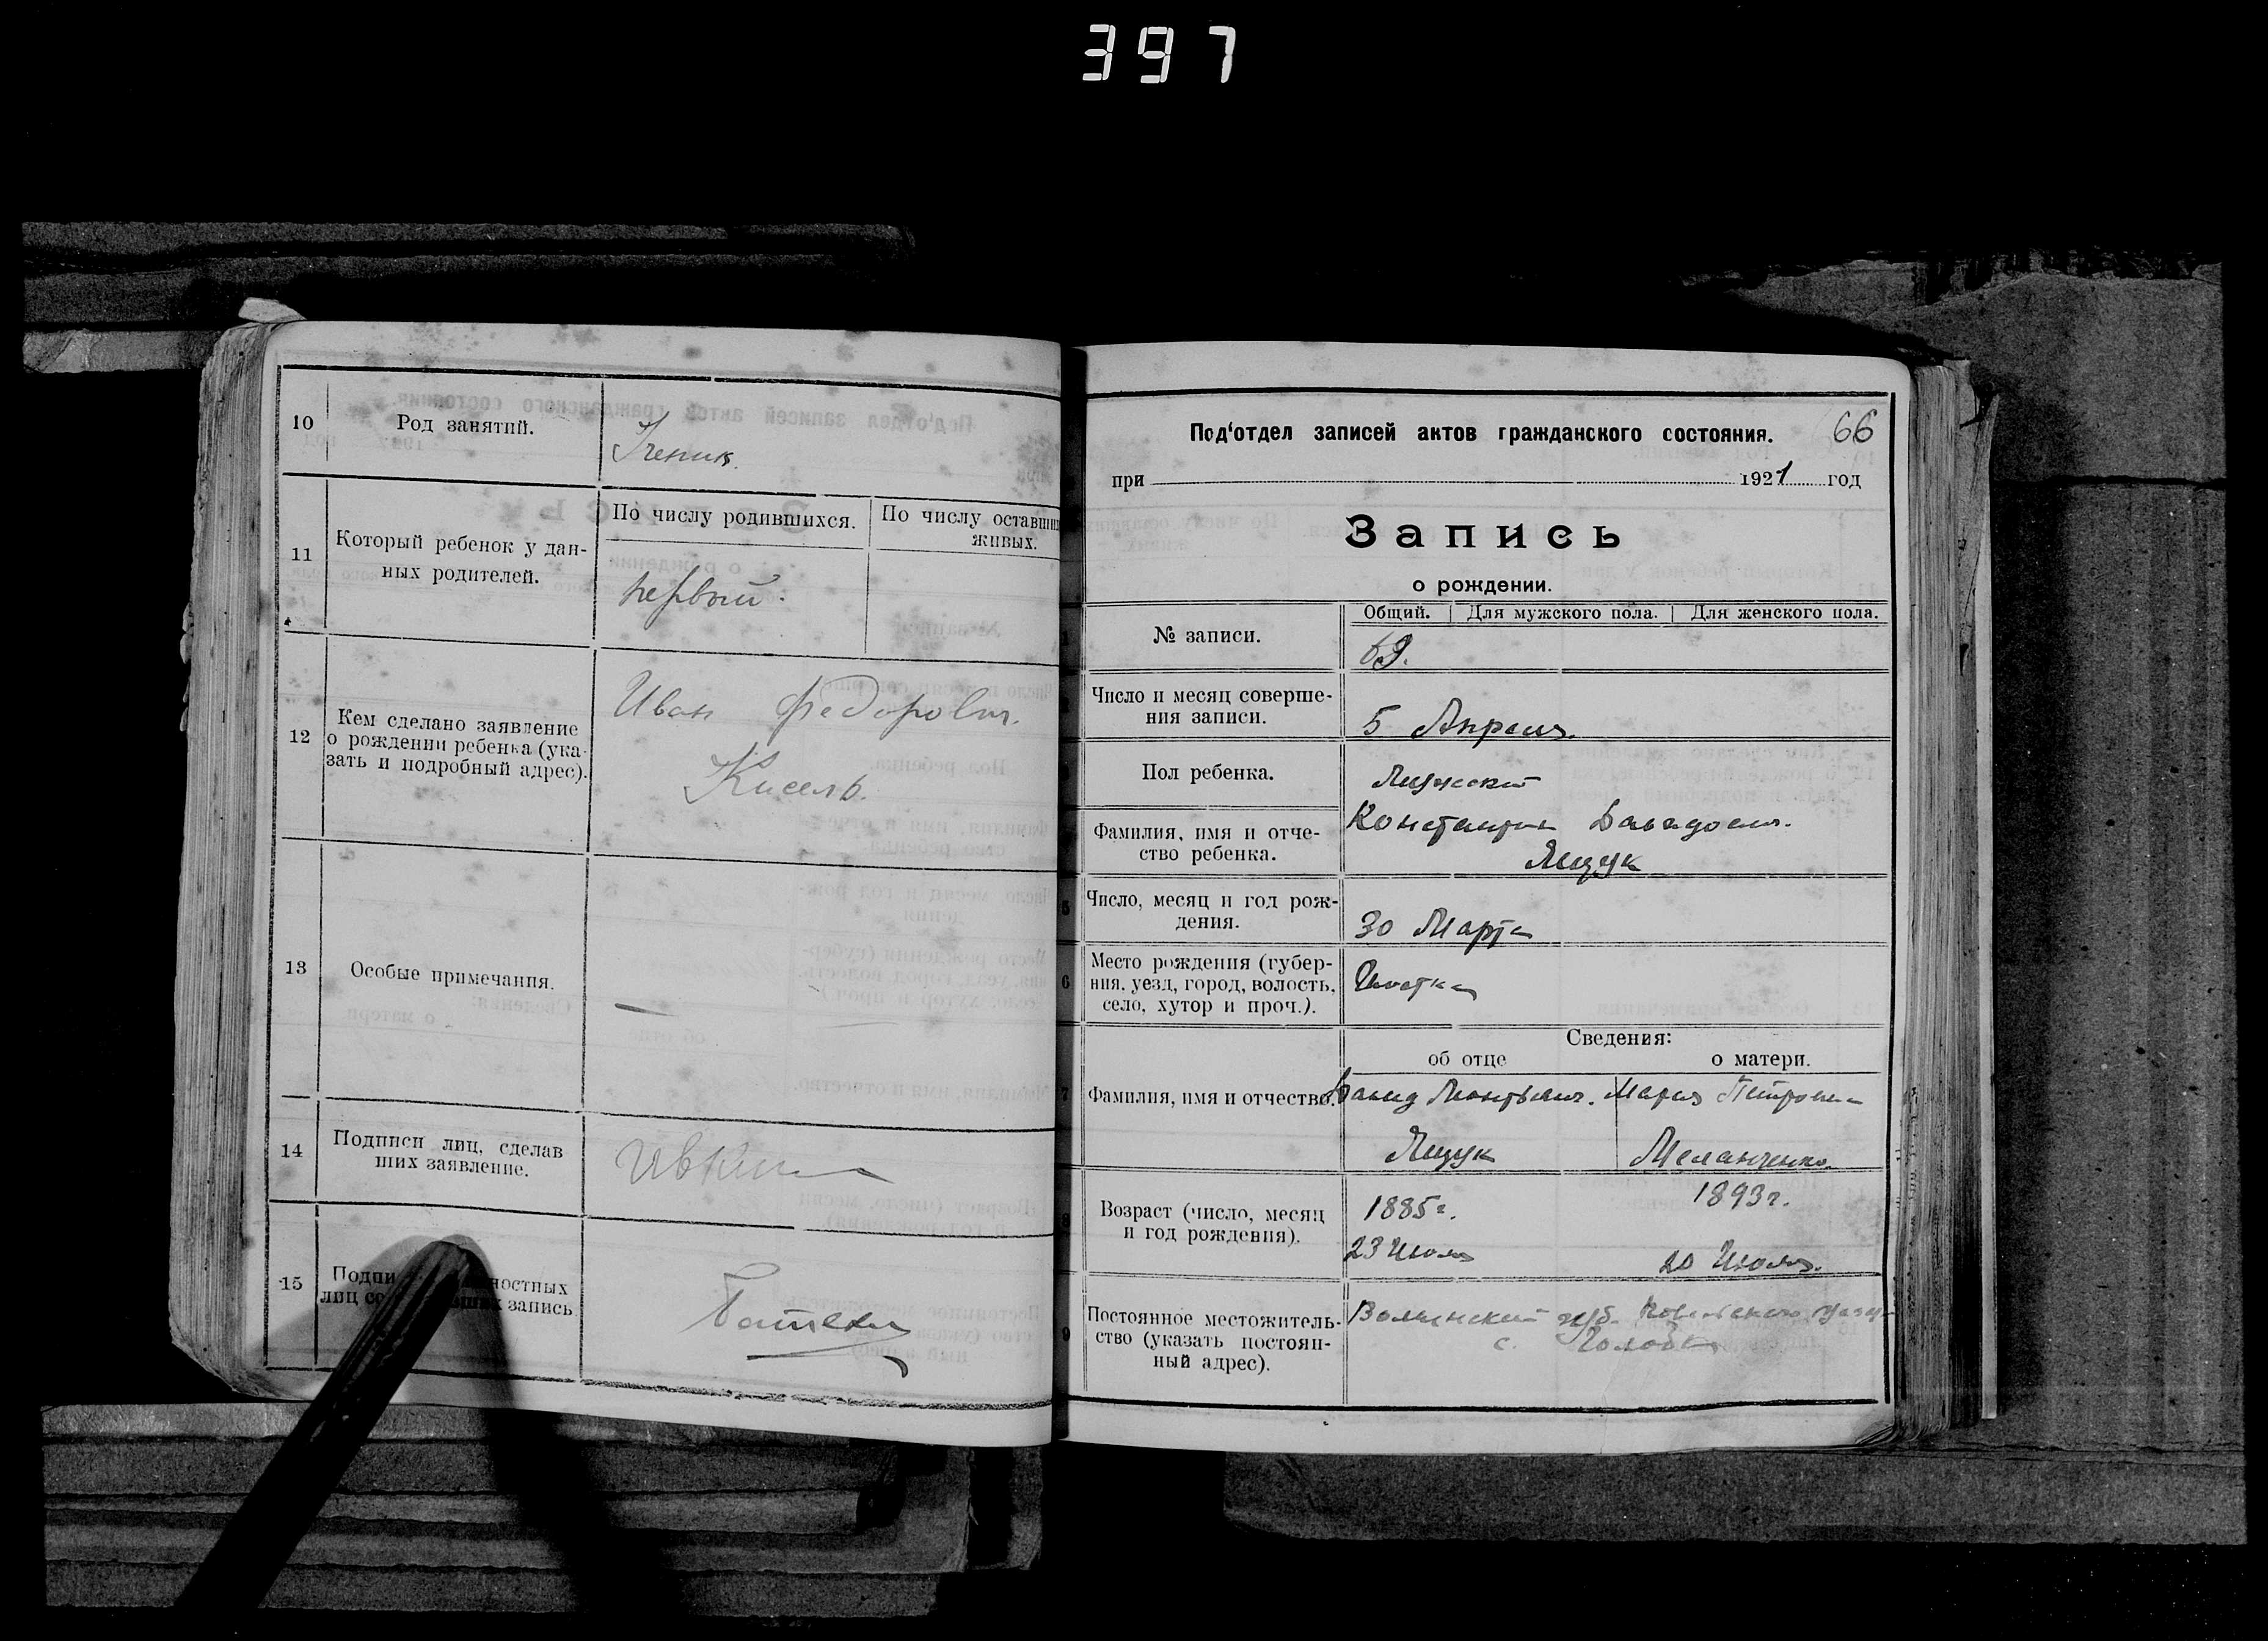 397
10
Род занятий.
Ученик.
11
Который ребенок у дан-
ных родителей.
По числу родившихся.
По числу оставших
живых.
первый.
12
Кем сделано заявление
о рождении ребенка (ука-
зать и подробный адрес).
Иван Федорович.
Кисель.
13
Особые примечания.
—
14
Подписи лиц, сделав
ших заявление.
15
Подпи ностных
лиц запись
66
Под‘отдел записей актов гражданского состояния.
при 1921 год
Запись
о рождении.
№ записи.
Общий. Для мужского пола. Для женского пола.
69.
Число и месяц соверше-
ния записи.
5 Апреля.
Пол ребенка.
Мужской
Фамилия, имя и отче-
ство ребенка.
Константин Давидович.
Ящук
5
Число, месяц и год рож-
дения.
30 Марта
6
Место рождения (губер-
ния, уезд, город, волость,
село, хутор и проч.).
Сведения:
об отце
о матери.
7
Фамилия, имя и отчество.
Давид Леонтьевич. Мария Петровна
Ящук
Меланченко
8
Возраст (число, месяц
и год рождения).
1885г. 1893г.
23 Июля 20 Июля.
9
Постоянное местожитель-
ство (указать постоян-
ный адрес).
Волынский губ. Ковельского уезда
с.